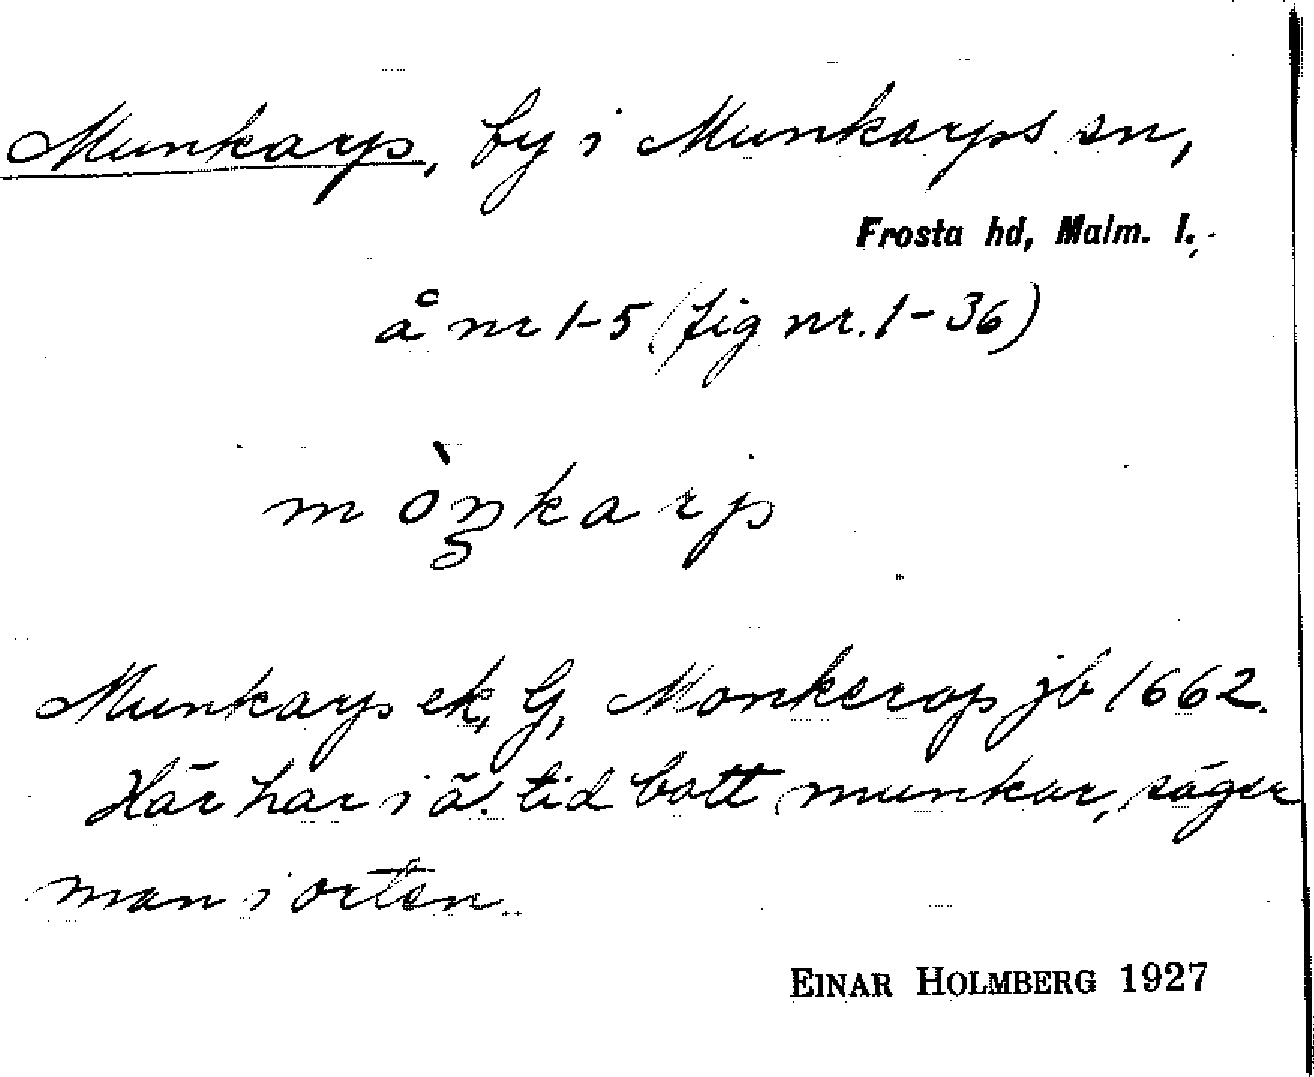 Munkarp, by i Munkarps sn,
Frosta hd, Malm. l.,
å nr 1-5 (fig nr. 1-36)
mòn̡karp
Munkarp ek, G, Monkerop jb 1662.
Här har i ä. tid bott munkar, säger
man i orten.
EINAR HOLMBERG 1927